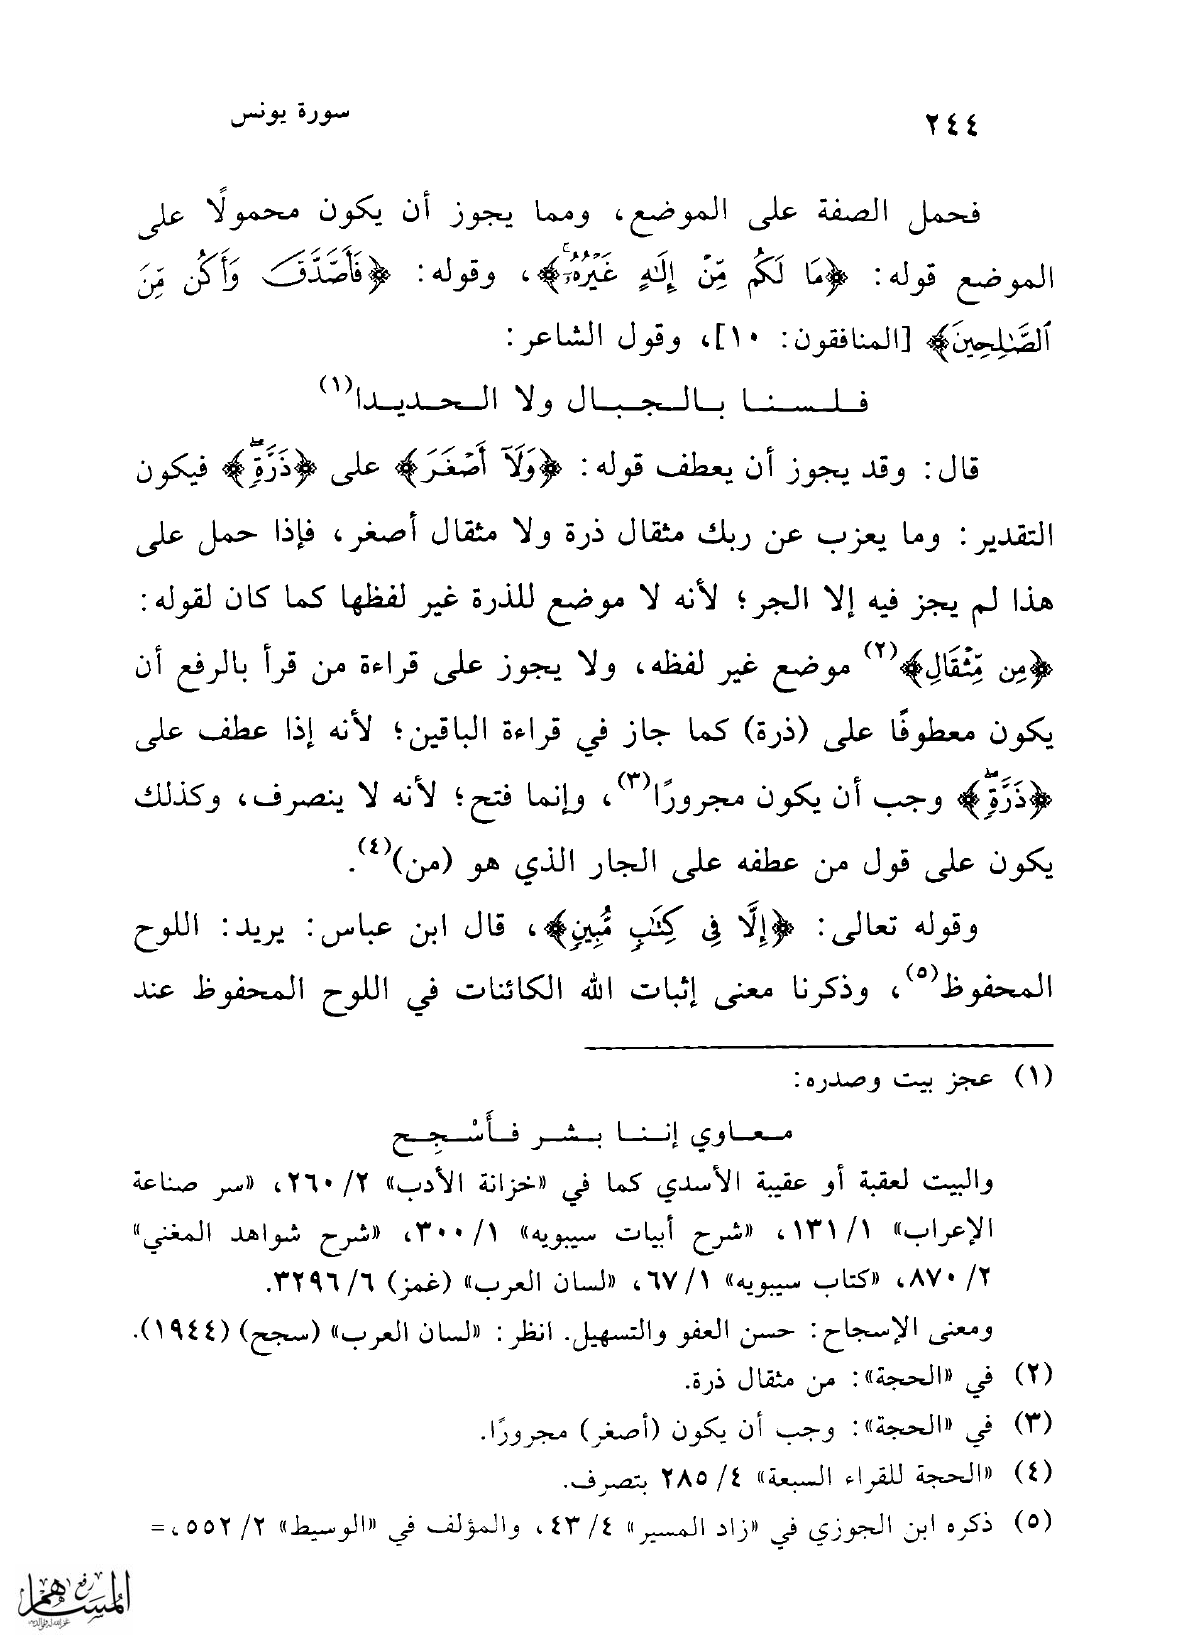 ٢٤٤
سورة يونس
فحمل الصفة على الموضع، ومما يجوز أن يكون محمولًا على
الموضع قوله: ﴿مَا لَكُم مِّنْ إِلَٰهٍ غَيْرُهُۥ﴾، وقوله: ﴿فَأَصَّدَّقَ وَأَكُن مِّنَ
ٱلصَّٰلِحِينَ﴾ [المنافقون: ١٠]، وقول الشاعر:
فلسنا بالجبال ولا الحديدا(١)
قال: وقد يجوز أن يعطف قوله: ﴿وَلَآ أَصْغَرَ﴾ على ﴿ذَرَّةٍۖ﴾ فيكون
التقدير: وما يعزب عن ربك مثقال ذرة ولا مثقال أصغر، فإذا حمل على
هذا لم يجز فيه إلا الجر؛ لأنه لا موضع للذرة غير لفظها كما كان لقوله:
﴿مِن مِّثْقَالِ﴾(٢) موضع غير لفظه، ولا يجوز على قراءة من قرأ بالرفع أن
يكون معطوفًا على (ذرة) كما جاز في قراءة الباقين؛ لأنه إذا عطف على
﴿ذَرَّةٍۖ﴾ وجب أن يكون مجرورًا(٣)، وإنما فتح؛ لأنه لا ينصرف، وكذلك
يكون على قول من عطفه على الجار الذي هو (من)(٤).
وقوله تعالى: ﴿إِلَّا فِى كِتَٰبٍ مُّبِينٍ﴾، قال ابن عباس: يريد: اللوح
المحفوظ(٥)، وذكرنا معنى إثبات الله الكائنات في اللوح المحفوظ عند
(١) عجز بيت وصدره:
معاوي إننا بشر فأَسْجِح
والبيت لعقبة أو عقيبة الأسدي كما في «خزانة الأدب» ٢/ ٢٦٠، «سر صناعة
الإعراب» ١/ ١٣١، «شرح أبيات سيبويه» ١/ ٣٠٠، «شرح شواهد المغني»
٢/ ٨٧٠، «كتاب سيبويه» ١/ ٦٧، «لسان العرب» (غمز) ٦/ ٣٢٩٦.
ومعنى الإسجاح: حسن العفو والتسهيل. انظر: «لسان العرب» (سجح) (١٩٤٤).
(٢) في «الحجة»: من مثقال ذرة.
(٣) في «الحجة»: وجب أن يكون (أصغر) مجرورًا.
(٤) «الحجة للقراء السبعة» ٤/ ٢٨٥ بتصرف.
(٥) ذكره ابن الجوزي في «زاد المسير» ٤/ ٤٣، والمؤلف في «الوسيط» ٢/ ٥٥٢، =